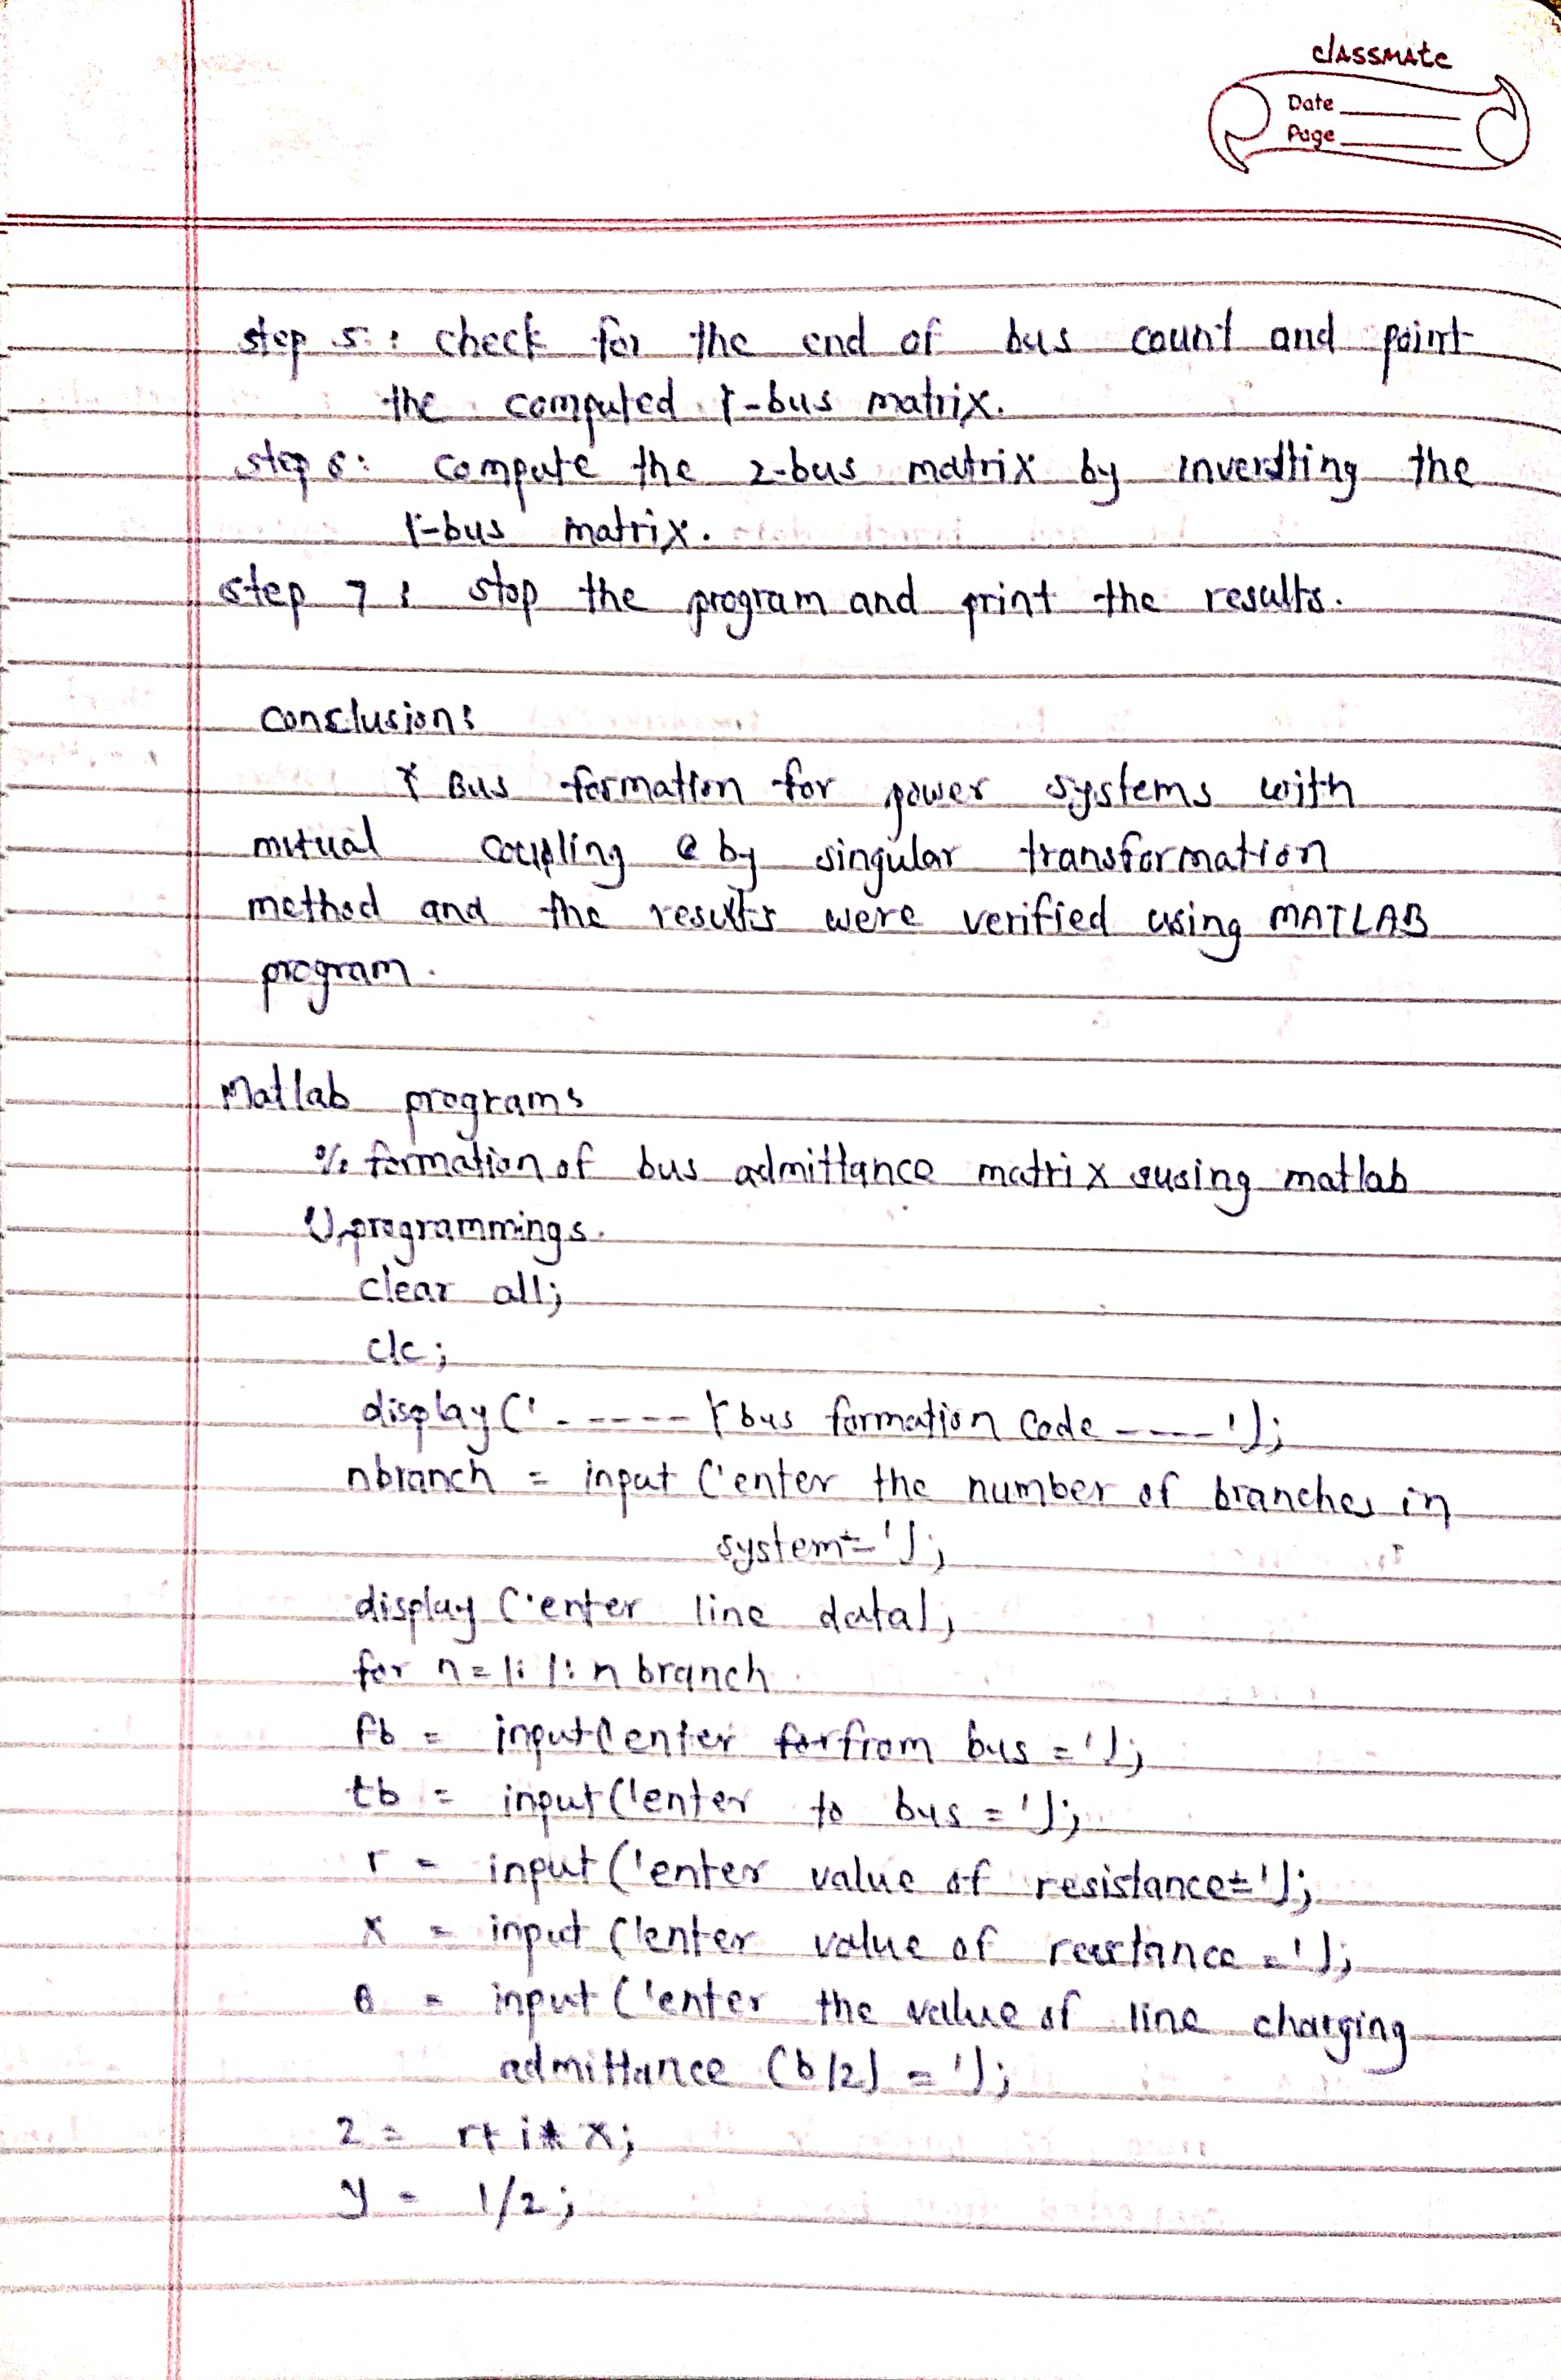 classmate
Date
Page
step 5: : check for the end of bus count and point
the computed Y-bus matrix.
step 6: compute the z-bus matrix by inverdting the
Y-bus matrix.
step 7: stop the program and print the results.
conclusion:
Y Bus formation for power systems with
mutual coupling by singular transformation
method and the results were verified using MATLAB
program.
Matlab programs
% formation of bus admittance matrix using matlab
programmings.
clear all;
clc;
display('------Ybus formation code ----');
nbranch = input('enter the number of branches in
system=');
display('enter line data);
for n=1:1:nbranch
fb = input('enter from bus =');
tb = input('enter to bus =');
r = input('enter value of resistance=');
x = input('enter value of reactance =');
B = input('enter the value of line charging
admittance (b/2) =');
z = r+i*x;
y = 1/z;